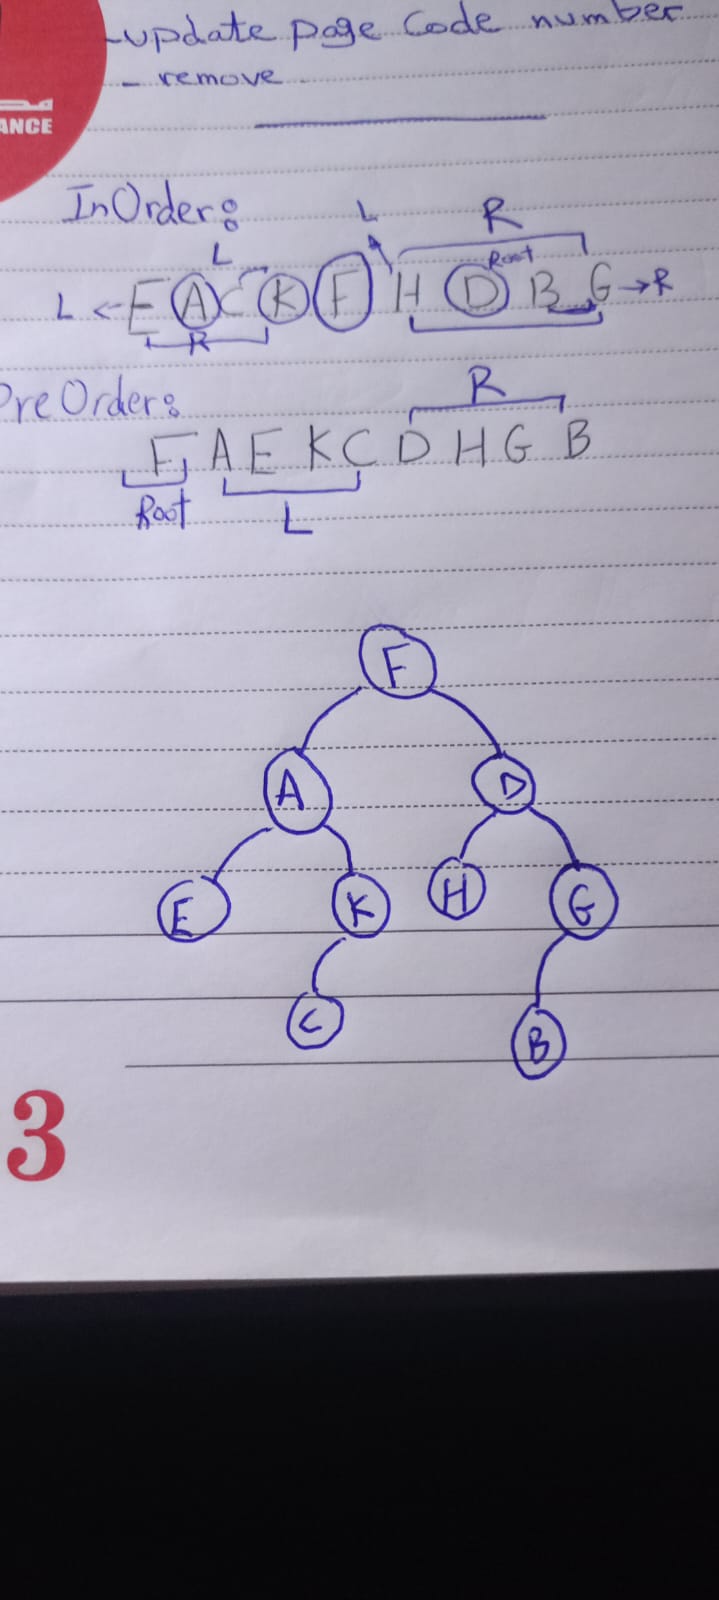 -update page Code number
- remove
ANCE
InOrder:
L L R
Root
L <- E A C K F H D B G -> R
R
PreOrder:
R
F A E K C D H G B
Root L
F
A D
E K H G
C B
3